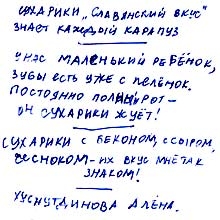 СУХАРИКИ „СЛАВЯНСКИЙ ВКУС"
ЗНАЕТ КАЖДЫЙ КАРАПУЗ
У НАС МАЛЕНЬКИЙ РЕБЁНОК,
ЗУБЫ ЕСТЬ УЖЕ С ПЕЛЁНОК.
ПОСТОЯННО ПОЛНЫЙ РОТ -
ОН СУХАРИКИ ЖУЁТ!
СУХАРИКИ С БЕКОНОМ, С СЫРОМ,
ЧЕСНОКОМ - ИХ ВКУС МНЕ ТАК
ЗНАКОМ!
ХУСНУТДИНОВА АЛЁНА.